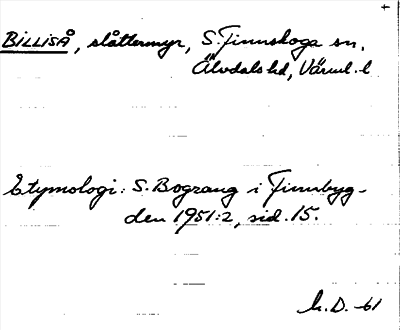 BILLISÅ, slåttermyr, S. Finnskoga sn,
Älvdals hd, Värml. l
Etymologi: S. Bograng i Finnbyg-
den 1951:2, sid. 15.
h.D. -61